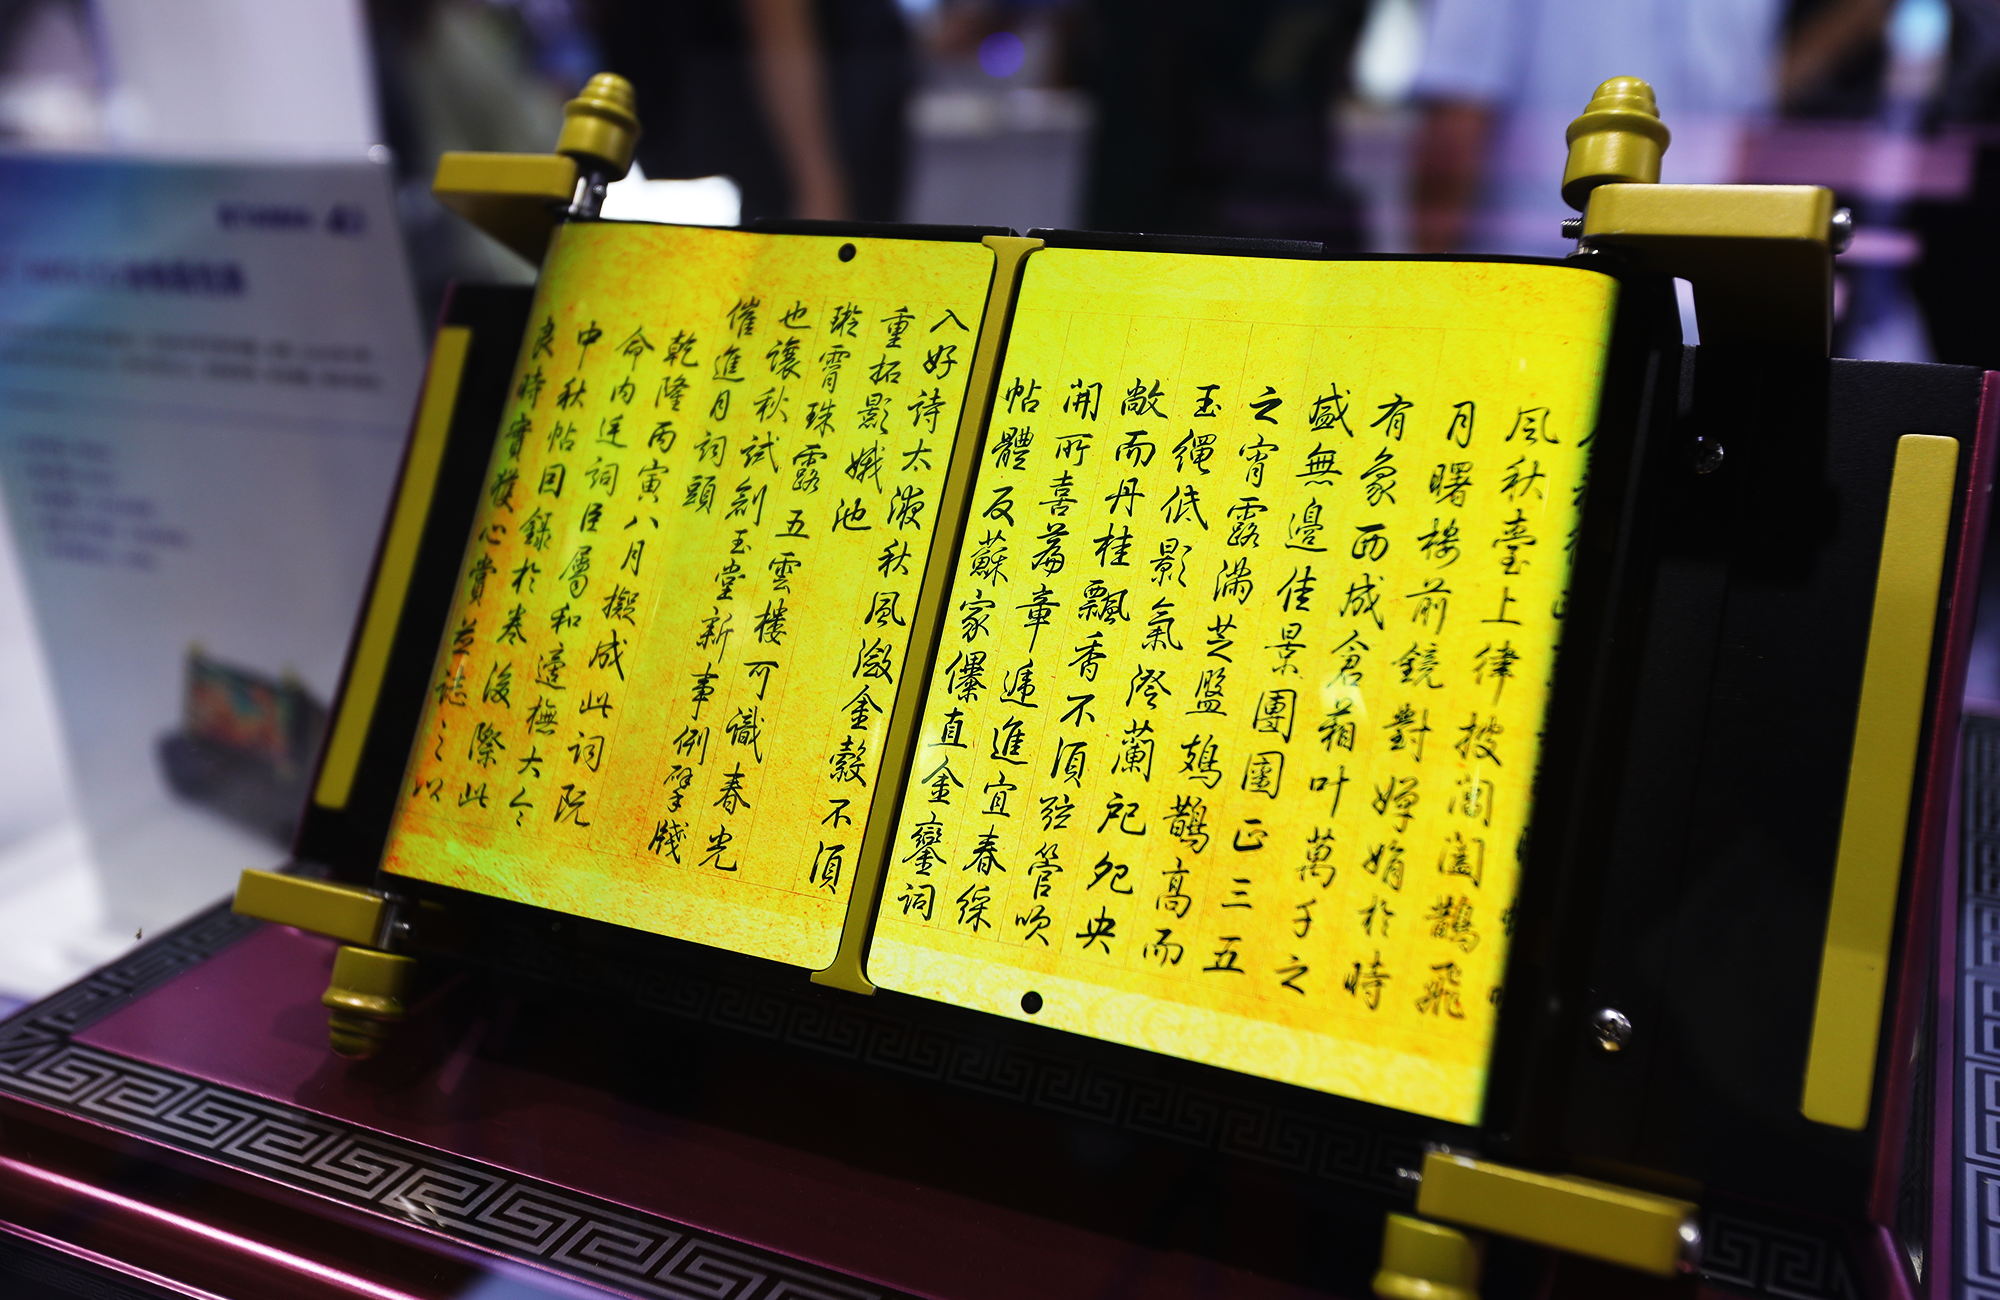 風秋臺上律披閶闔鵲飛
月曙樓前鏡對嬋娟於時
有象西成倉箱叶萬千之
盛無邊佳景團圞正三五
之宵露滿芝盤鳷鵲高而
玉繩低影氣澄蘭戺兒央
敞而丹桂飄香不須弦管吹
開所喜篇章遞進宜春綵
帖體反蘇家儤直金鑾詞
入好詩太液秋風瀲金縠不須
重拓影娥池
璇霄珠露五雲樓可識春光
也讓秋試劍玉堂新事例擘牋
催進月詞頭
乾隆丙寅八月擬成此詞既
命內廷詞臣屬和遂撫大令
中秋帖因錄於卷後際此
良時實愜心賞並誌之以